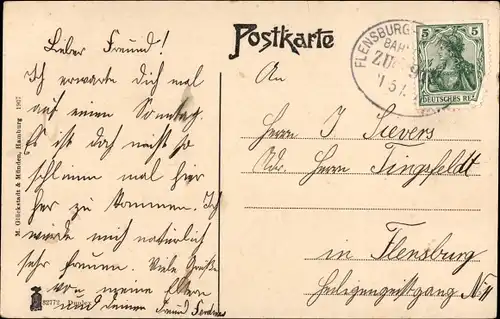 Postkarte
FLENSBURG-
BAH
ZUG 97
1 5 7
5 5
DEUTSCHES REI
Lieber Freund!
Ich erwarte dich mal
auf einen Sonntag.
Es ist doch nicht so
schlimm mal hier
her zu kommen. Ich
würde mich natürlich
sehr freuen. Viele Grüße
von meine Eltern
und deinem Freund
An
Herrn J Sievers
Adr. Herrn Tingsfeldt
in Flensburg
Heiligengeistgang N 11
M. Glückstadt & Münden, Hamburg 1907
32772 Duplex